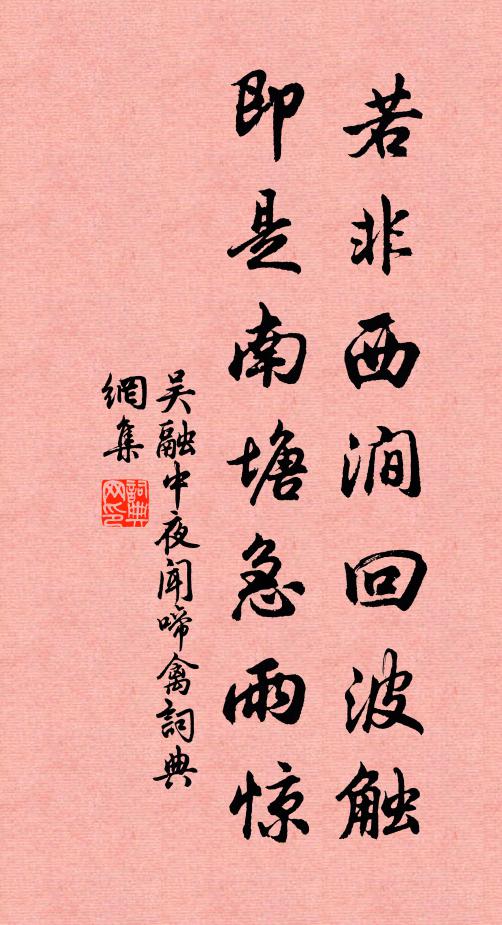 若非西涧回波触
即是南塘急雨惊
吴融中夜闻啼禽詞典
網集
詞典网印